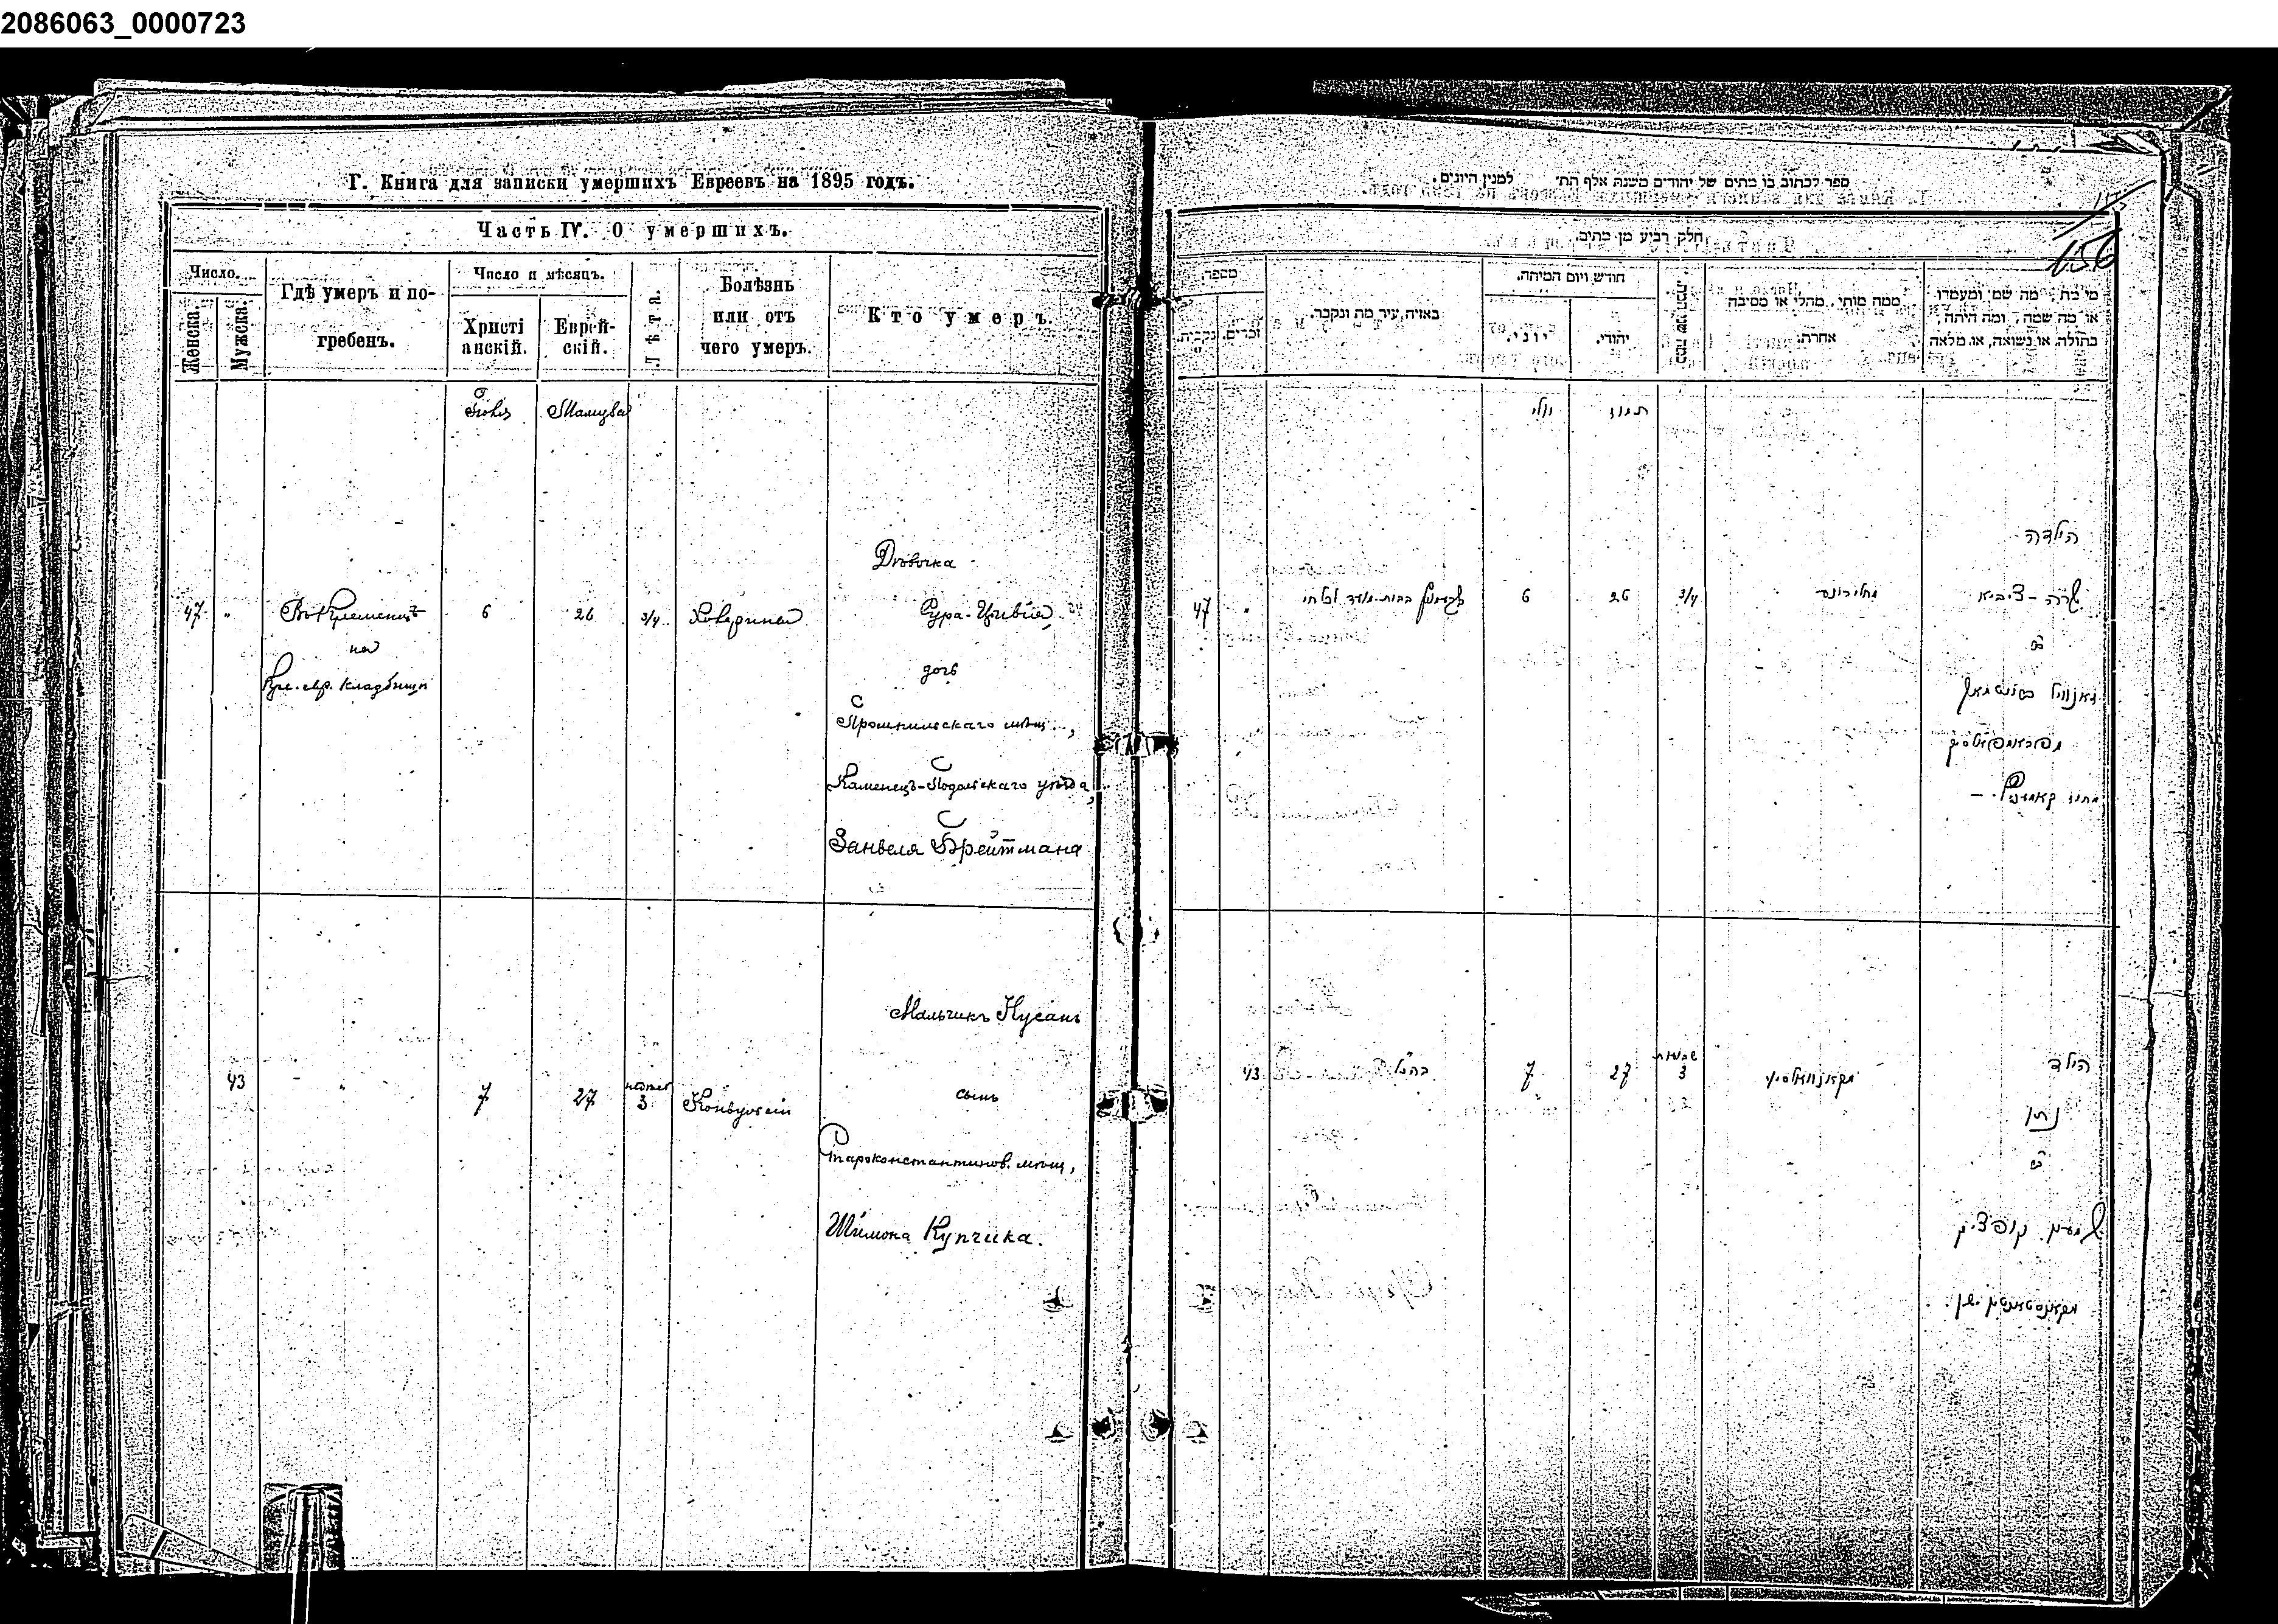 2086063_0000723
Г. Книга для записки умершихъ Евреевъ на 1895 годъ.
Часть IV. О умершихъ.
Число.
Женска.
Мужска.
Гдѣ умеръ и по-
гребенъ.
Число и мѣсяцъ.
Христі
анскій.
Еврей-
скій.
Лѣта.
Болѣзнь
или отъ
чего умеръ.
Кто умеръ.
Іюль
47
"
Въ Кременцѣ
на
Кре. евр. кладбищѣ
6
26
3/4
Холерина
Дѣвочка
Сура-Цивія,
дочь
мѣщ.,
Каменецъ-Подольскаго уѣзда,
Занвеля Брейтмана
43
7
27
недѣл
3
Мальчикъ Нусанъ
сынъ
Староконстантинов. мѣщ.,
Шимона Купчика.
ספר לכתוב בו מתים של יהודים משנת אלף תת' למנין היונים.
156
חלק רביע מן מתים.
מספר.
נקבות.
זכרים.
באיזה עיר מת ונקבר.
חודש ויום המיתה.
יוני.
יהודי.
ממה מותי, מחלי או מסיבה
אחרת.
מי מת, מה שמו ומעמדו
או מה שמה, ומה היתה,
בתולה, או נשואה, או מלאה
יולי
תמוז
47
"
6
26
3/4
הילדה
שרה-ציביא
43
7
27
שבועות
3
הילד
נתן
שמעון קופציק